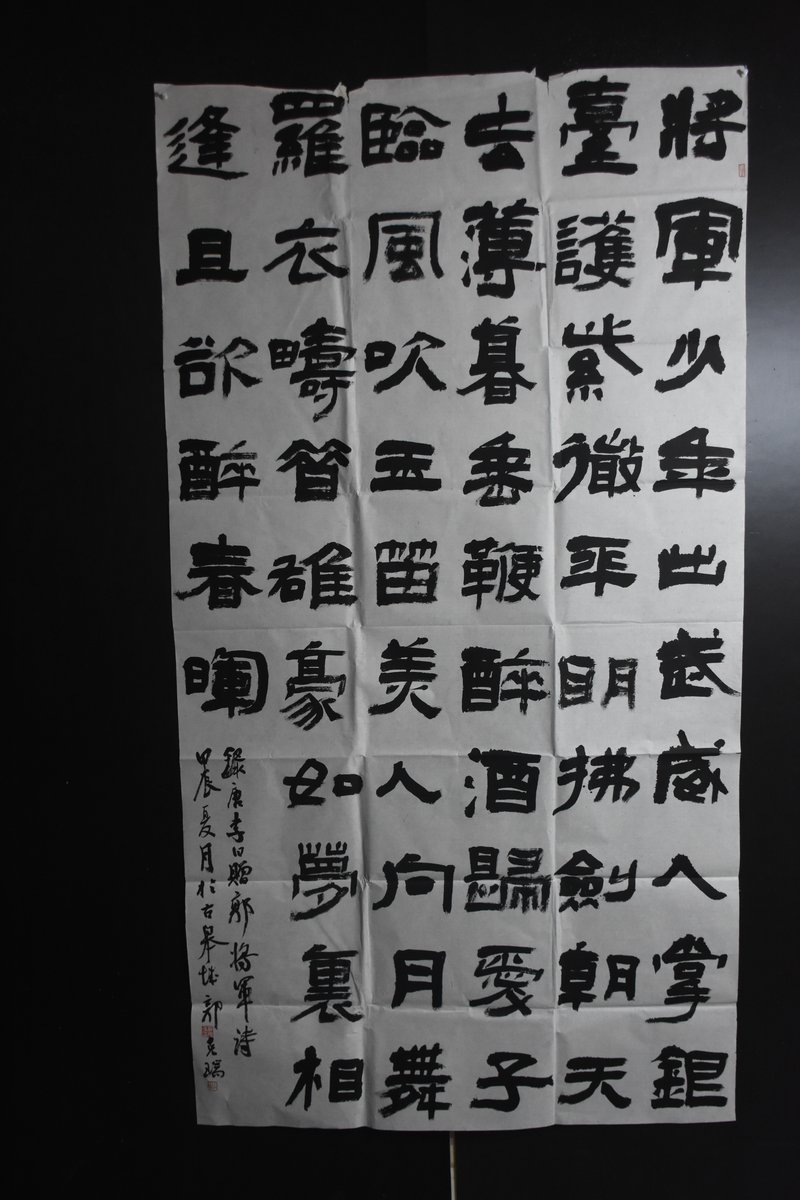 將軍少年出武威入掌銀
臺護紫微平明拂劍朝天
去薄暮垂鞭醉酒歸愛子
臨風吹玉笛美人向月舞
羅衣疇昔雄豪如夢裏相
逢且欲醉春暉
錄唐李白贈郭将軍詩
甲辰夏月於古皋城郭克瑞